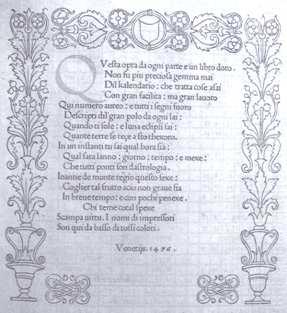 Vesta opra da ogni parte e un libro doro.
Non fu piu preciosa gemma mai
Dil kalendario: che tratta cose asai
Con gran facilita: ma gran lauoro
Qui numero aureo: e tutti i segni fuoro
Descripti dil gran polo da ogni lai:
Quando il sole: e luna eclipsi fai:
Quante terre se rece a sto thexoro.
In un instanti tu sai qual hora sia:
Qual sara lanno: giorno: tempo: e mexe:
Che tutti ponti son dastrologia.
Ioanne de monte regio questo fexe:
Coglier tal frutto acio non graue sia
In breue tempo: e con pochi penexe.
Chi teme cotal spexe
Scampa uirtu. I nomi di impressori
Son qui da basso di rossi colori.
Venetijs. 1476.